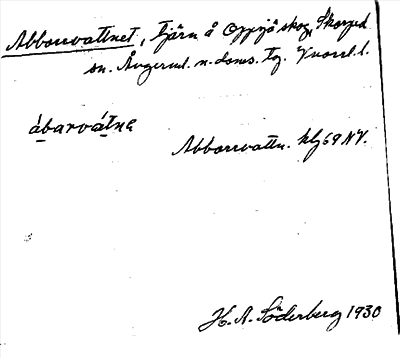 Abborrvattnet, tjärn å Oppsjö skog, Skorped
sn. Ångerml. n. doms. tg. Vnorrl. l.
ábarvátnɐ
Abborrvattn. blz 69 NV.
H. A. Söderberg 1930